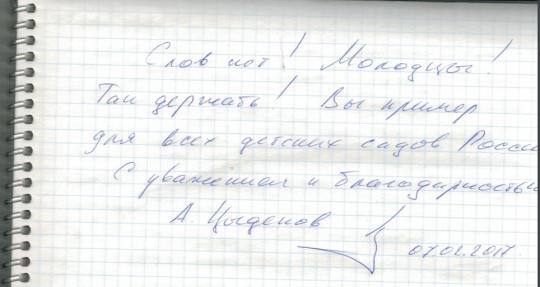 Слов нет! Молодцы!
Так держать! Вы пример
для всех детских садов России
С уважением и благодарностью
А. Цыденов
07.02.2017